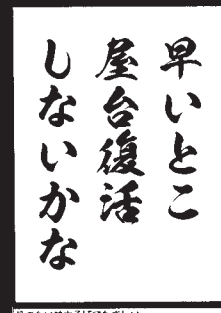 早いとこ
屋台復活
しないかな